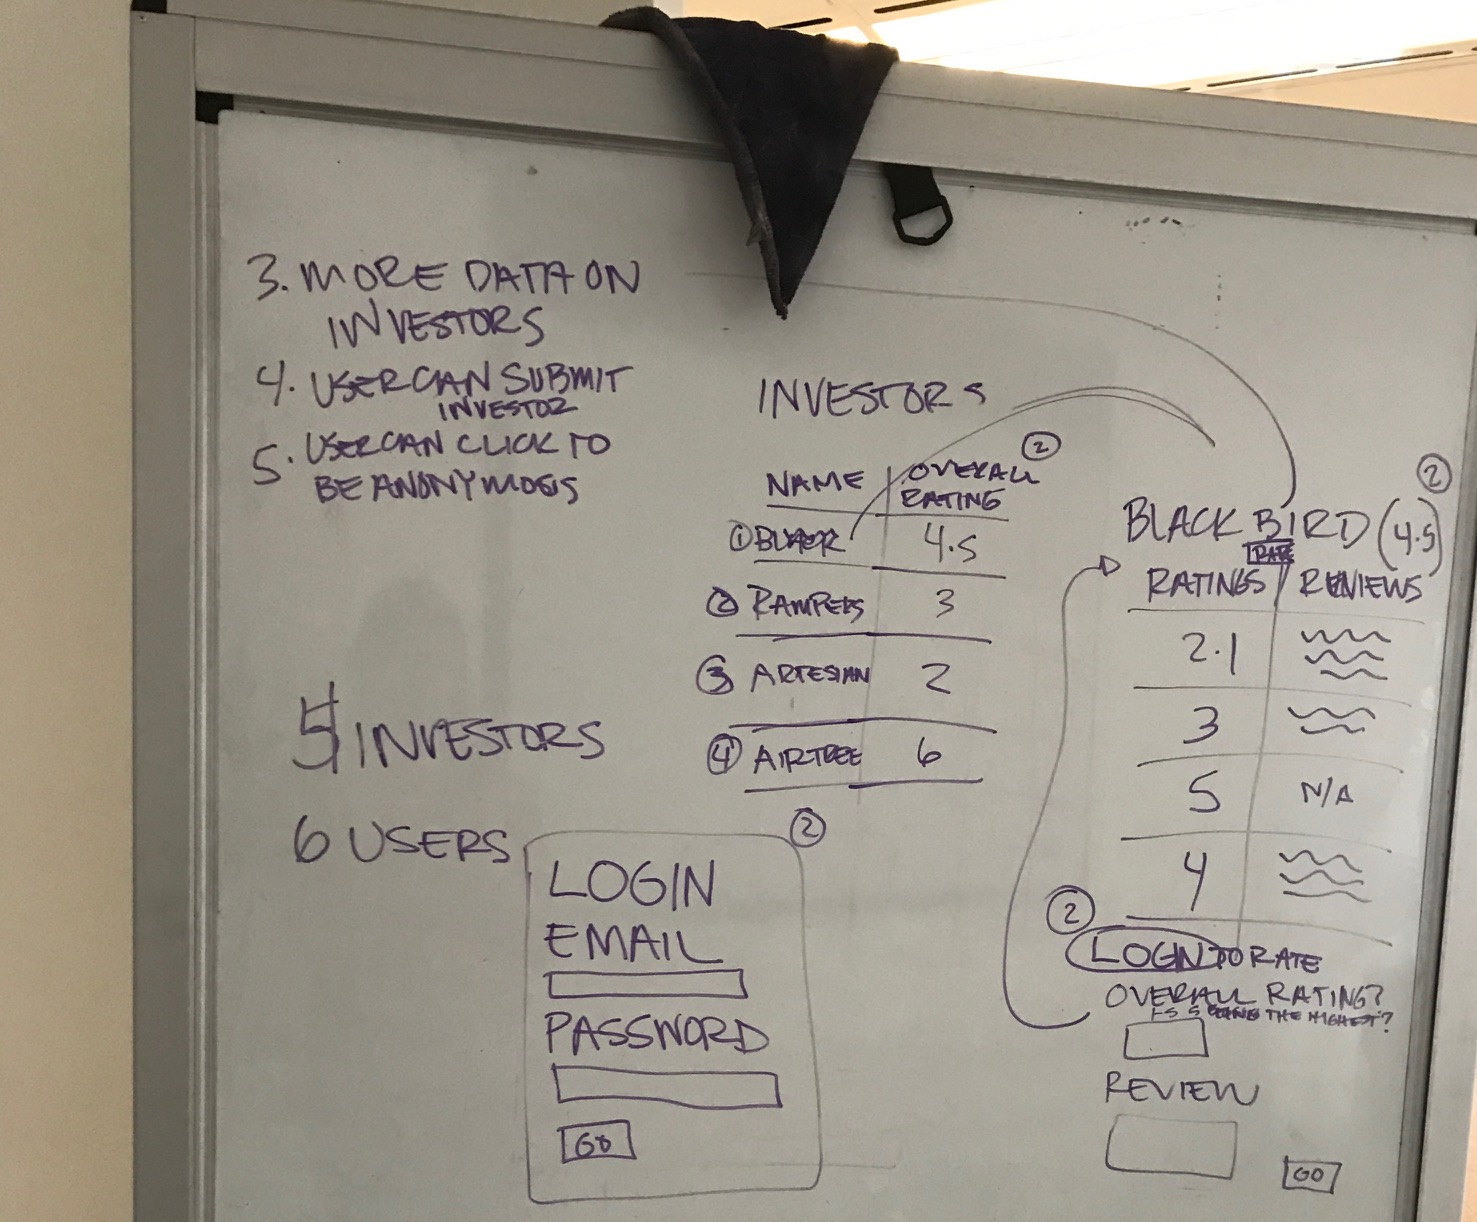 3. MORE DATA ON
INVESTORS
4. USER CAN SUBMIT
INVESTOR
5. USER CAN CLICK TO
BE ANONYMOUS
5 INVESTORS
6 USERS
INVESTORS
NAME OVERALL RATING ②
① 4.5
② 3
③ ARTESIAN 2
④ AIRTREE 6
②
LOGIN
EMAIL
PASSWORD
GO
②
BLACK BIRD (4.5)
RATE
RATINGS REVIEWS
2.1
3
5 N/A
4
②
LOGIN TO RATE
OVERALL RATING?
5 BEING THE HIGHEST?
REVIEW
GO